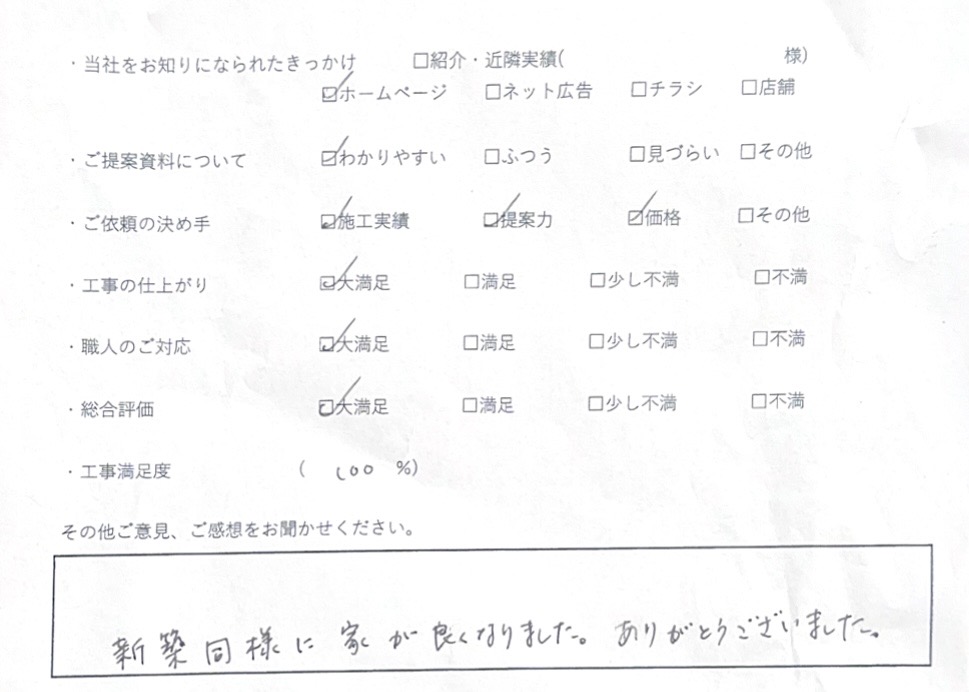 ・当社をお知りになられたきっかけ ☐紹介・近隣実績( 様)
☑ホームページ ☐ネット広告 ☐チラシ ☐店舗
・ご提案資料について ☑わかりやすい ☐ふつう ☐見づらい ☐その他
・ご依頼の決め手 ☑施工実績 ☑提案力 ☑価格 ☐その他
・工事の仕上がり ☑大満足 ☐満足 ☐少し不満 ☐不満
・職人のご対応 ☑大満足 ☐満足 ☐少し不満 ☐不満
・総合評価 ☑大満足 ☐満足 ☐少し不満 ☐不満
・工事満足度 ( 100 %)
その他ご意見、ご感想をお聞かせください。
新築同様に家が良くなりました。ありがとうございました。